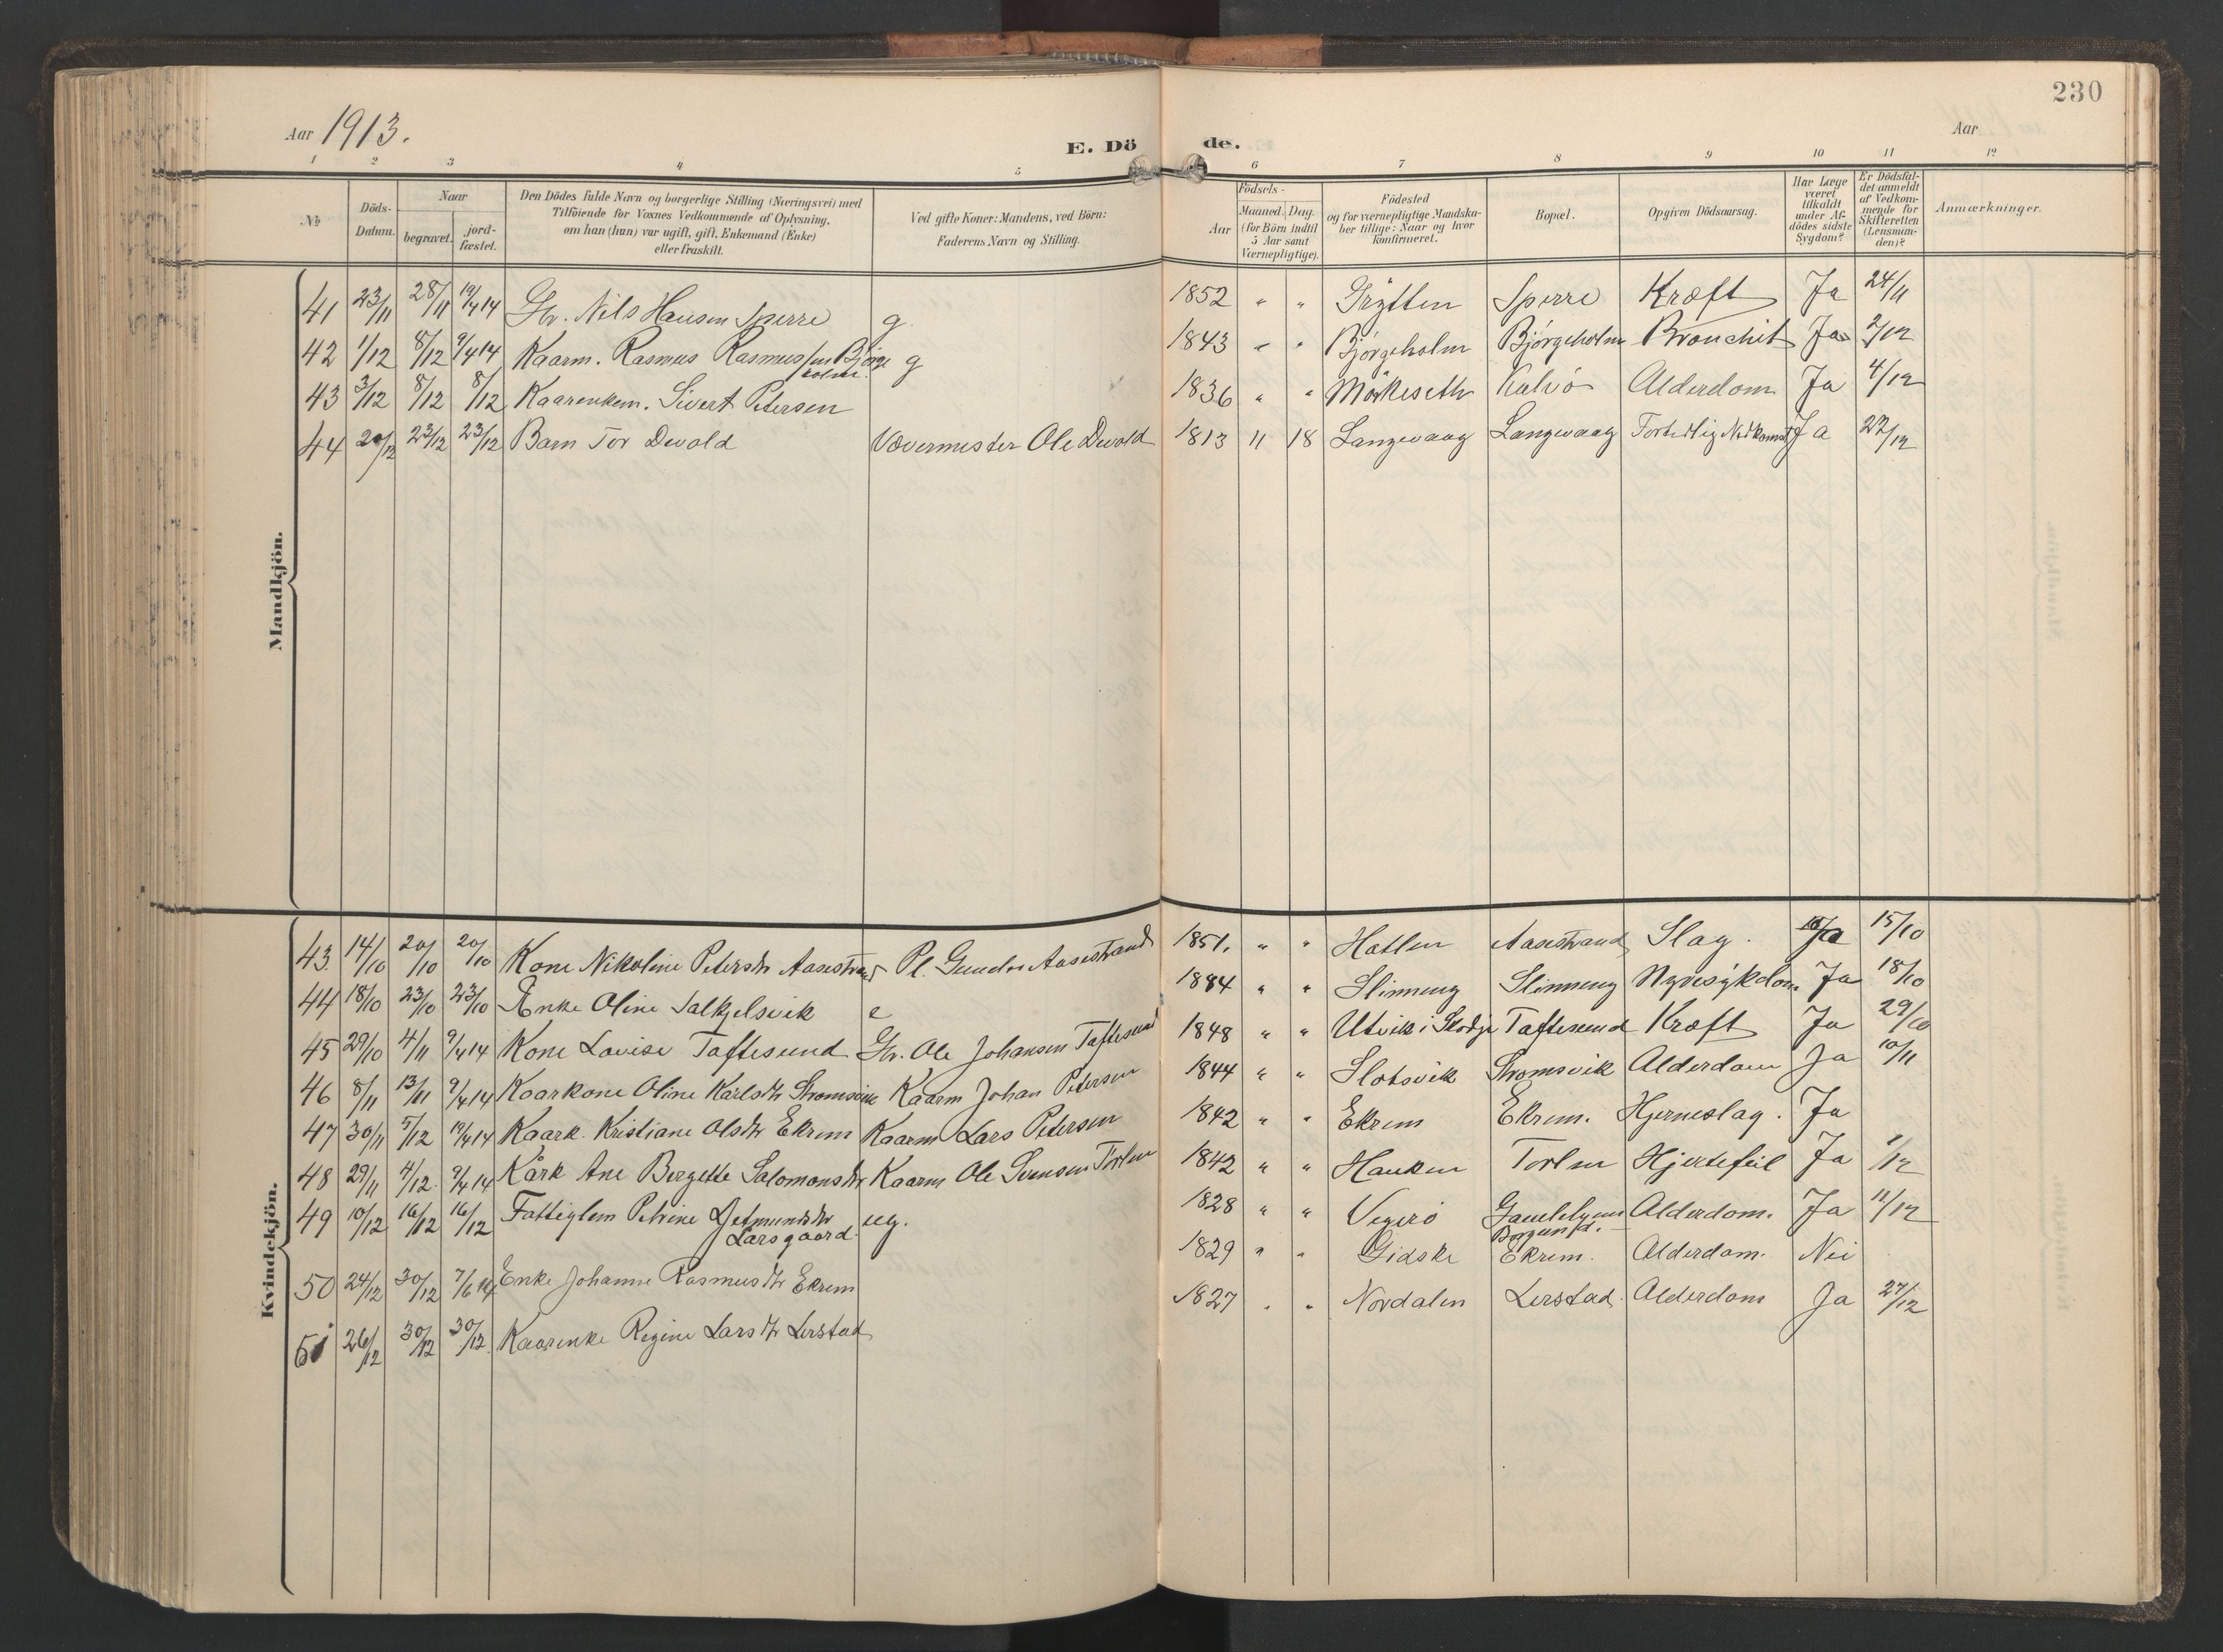 230
Aar 1913.
E. Döde.
Aar
1 2 3 4 5 6 7 8 9 10 11 12
№
Döds-Datum.
Naar
begravet.
jord-fæstet.
Den Dödes fulde Navn og borgerlige Stilling (Næringsvei) med
Tilföiende for Voxnes Vedkommende af Oplysning,
om han (hun) var ugift, gift, Enkemand (Enke)
eller fraskilt.
Ved gifte Koner: Mandens, ved Börn:
Faderens Navn og Stilling.
Födsels-
Aar
Maaned. Dag.
(for Börn indtil
5 Aar samt
Værnepligtige).
Födested
og for værnepligtige Mandska-
ber tillige: Naar og hvor
konfirmeret.
Bopæl.
Opgiven Dödsaarsag.
Har Læge
været
tilkaldt
under Af-
dödes sidste
Sygdom?
Er Dödsfal-
det anmeldt
af Vedkom-
mende for
Skifteretten
(Lensman-
den)?
Anmærkninger.
Mandkjön.
41 23/11 28/11 19/4 14 Gbr. Nils Hansen Sperre g 1852 " " Grytten Sperre Kræft Ja 24/11
42 1/12 8/12 9/4 14 Kaarm. Rasmus Rasmussen Bjørge g 1843 " " Bjørgeholm Bjørgeholm Bronchit Ja 2/12
holm.
43 3/12 8/12 8/12 Kaarenkem. Sivert Petersen 1836 " " Mørkeseth Kalvø Alderdom Ja 4/12
44 20/12 23/12 23/12 Barn Tor Devold Vævermester Ole Devold 1813 11 18 Langevaag Langevaag Fortidlig Nedkomst Ja 22/12
Kvindekjön.
43 14/10 20/10 20/10 Kone Nikoline Petersdtr Aasestrand Pl. Gunder Aasestrand 1851. " " Hatlen Aasestrand Slag. Ja 15/10
44 18/10 23/10 23/10 Enke Oline Valkjelsvik e 1884 " " Slinneng Slinneng Nyresykdom. Ja 18/10
45 29/10 4/11 9/4 14 Kone Lovise Taftesund Gbr. Ole Johansen Taftesund 1848 " " Utvik i Skodje Taftesund Kræft Ja 29/10
46 8/11 13/11 9/4 14 Kaarkone Oline Karlsdtr Stromsvik Kaarm Johan Petersen 1844 " " Slotsvik Stromsvik Alderdom Ja 10/11
47 30/11 5/12 19/4 14 Kaark. Kristiane Olsdtr Ekrem Kaarm Lars Petersen 1842 " " Ekrem Ekrem. Hjerneslag. Ja
48 29/11 4/12. 9/4 14 Kårk Ane Bergette Salomonsdtr Kaarm Ole Svensen Torlen 1842 " " Hauken Torlen Hjertefeil Ja 1/12
49 10/12 16/12 16/12 Fattiglem Petrine Gjetmundsdtr ug. 1828 " " Vegerö Gamlehjem Alderdom. Ja 11/12
Larsgaard. Borgund.
50 24/12 30/12 7/6 14 Enke Johanne Rasmusdtr Ekrem 1829 " " Gidske Ekrem. Alderdom. Nei
51 26/12 30/12 30/12 Kaarenke Regine Larsdtr Lerstad 1827 " " Nordalen Lerstad. Alderdom Ja 27/12